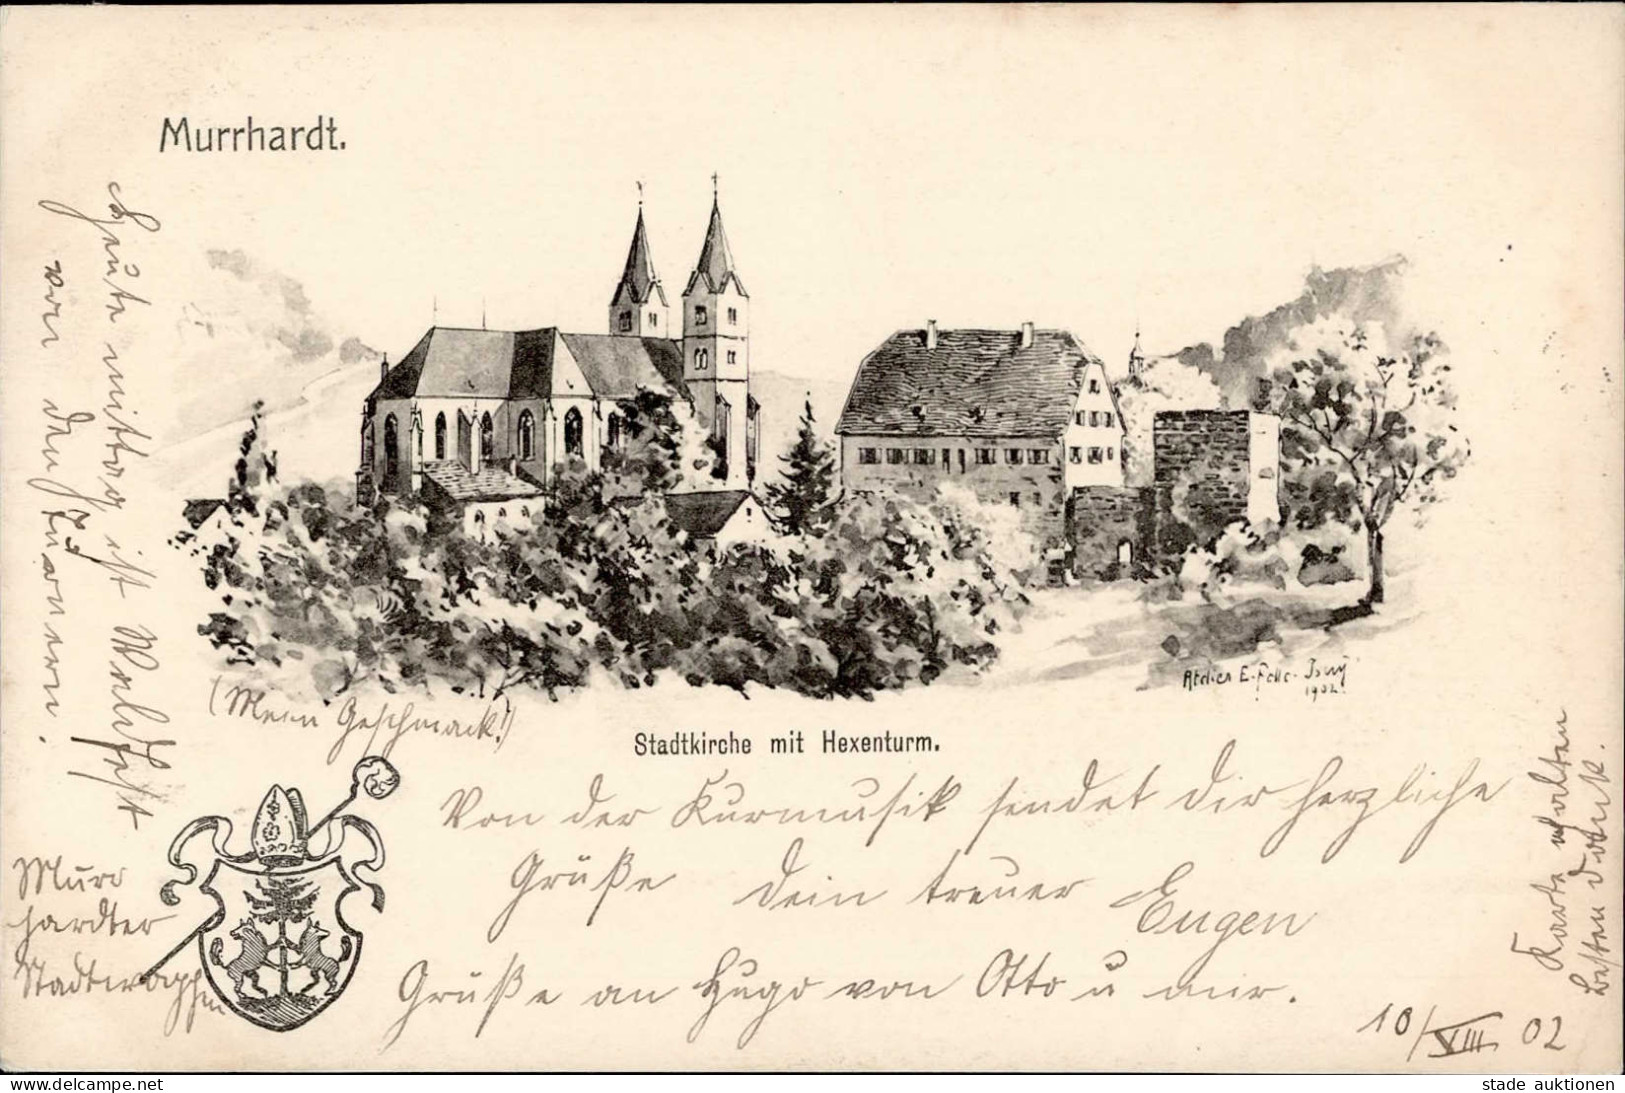 Murrhardt.
Heute mittag ist Waldfest
von den Turnern.
(Mein Geschmack!)
Atelier E. Felle - Isny
1902.
Stadtkirche mit Hexenturm.
Von der Kurmusik sendet Dir herzliche
Grüße Dein treuer Eugen
Grüße an Hugo von Otto u mir.
10/VIII 02
Murr
hardter
Stadtwappen
Karte erhalten
besten Dank.
www.delcampe.net
stade auktionen